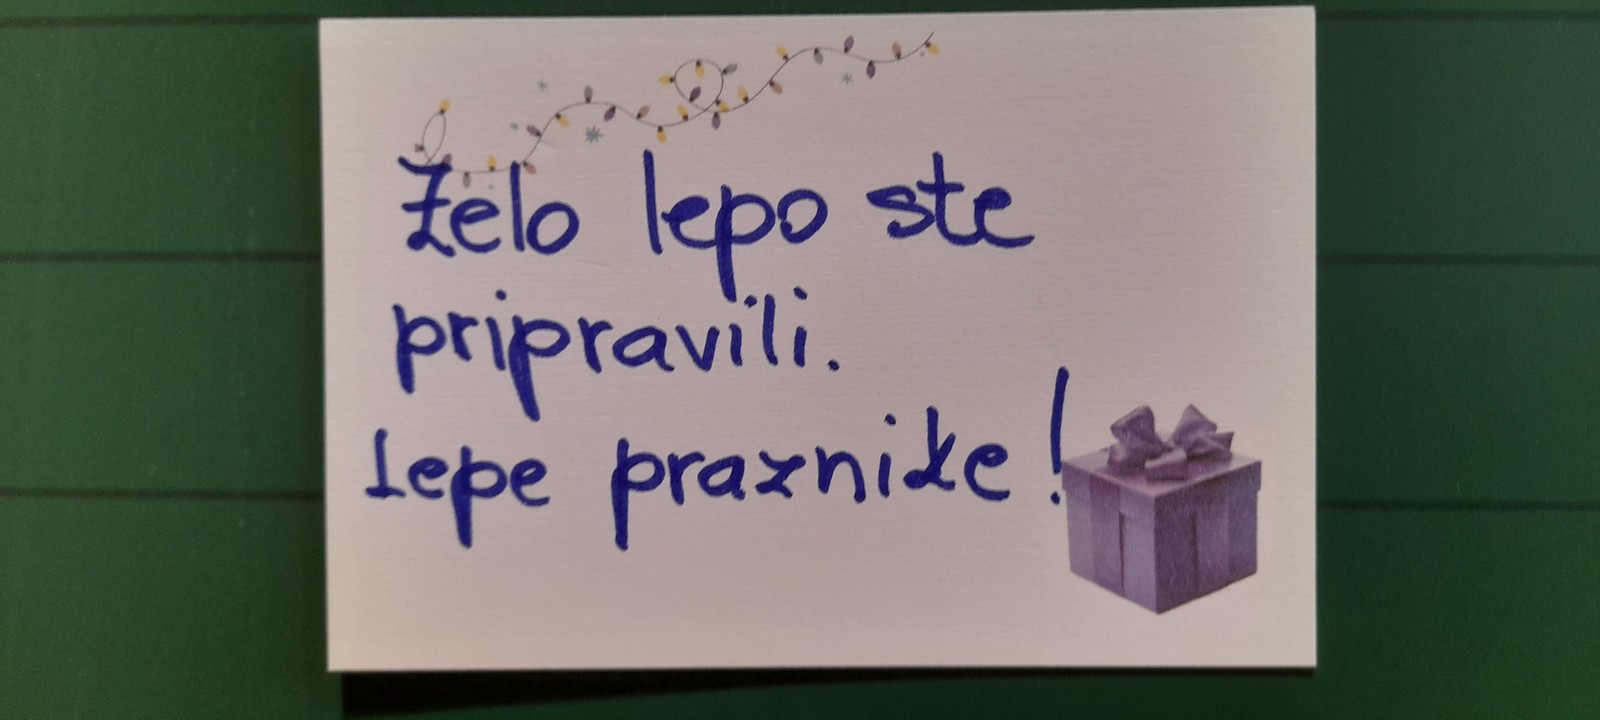 Zelo lepo ste
pripravili.
Lepe praznike!